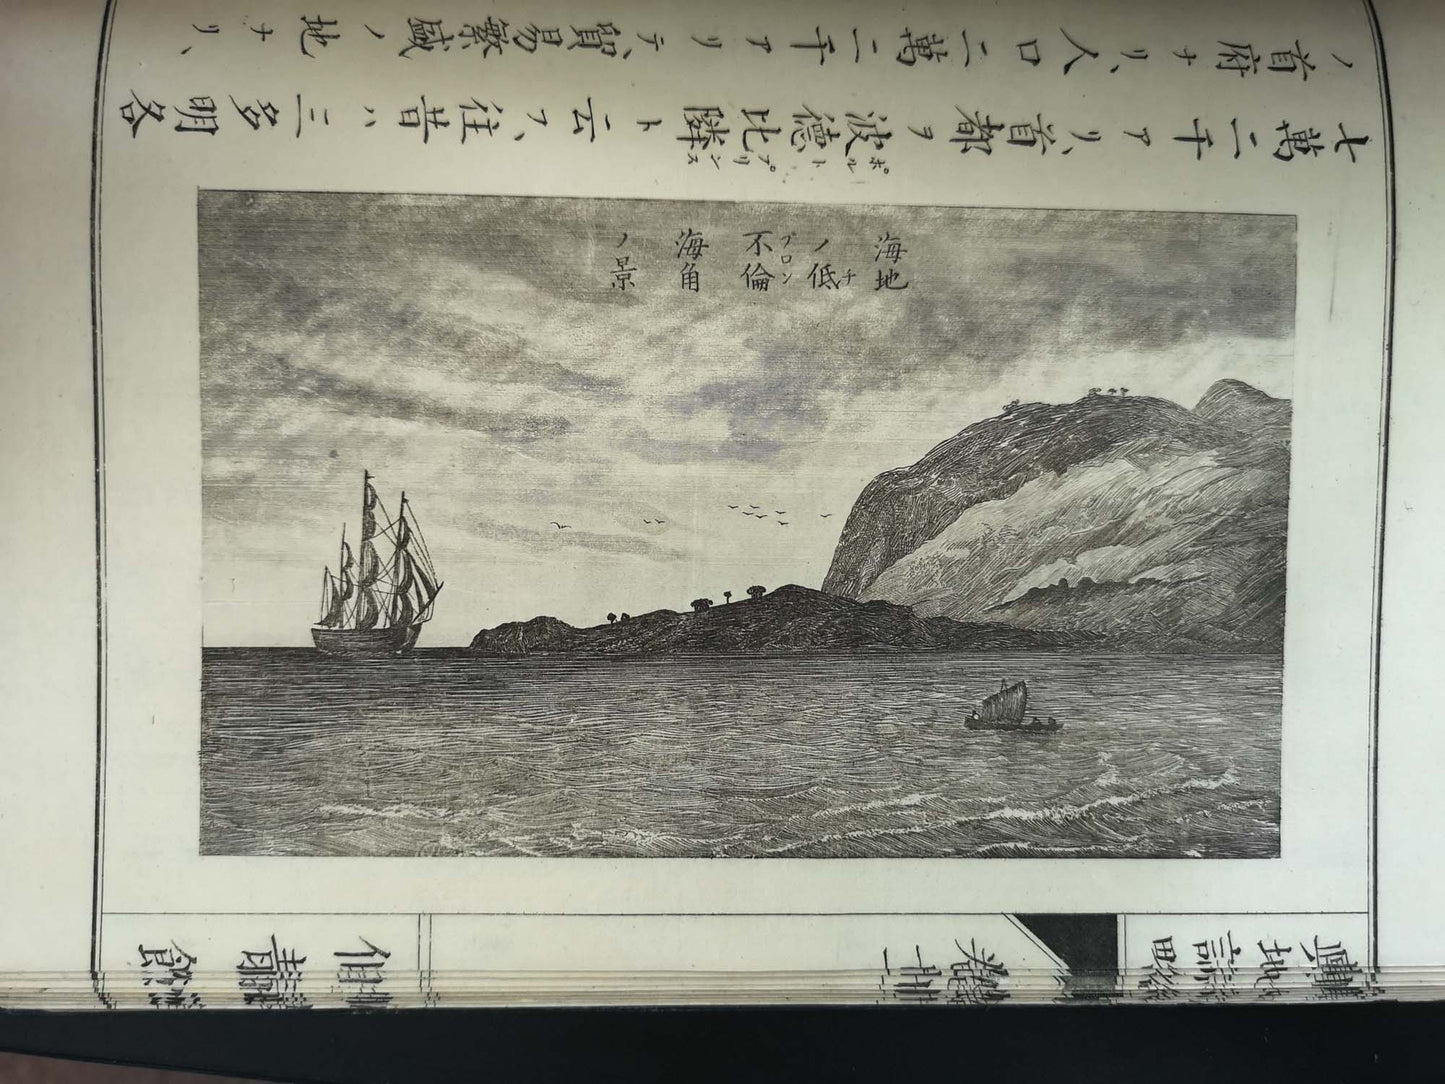 輿地誌畧
七萬二千アリ、首都ヲ波德比隣ト云フ、往昔ハ三多明各
ポルトプリンス
ノ首府ナリ、人口二萬二千アリテ、貿易繁盛ノ地ナリ、
海地
ノ低
チ
不倫
ブロン
海角
ノ景